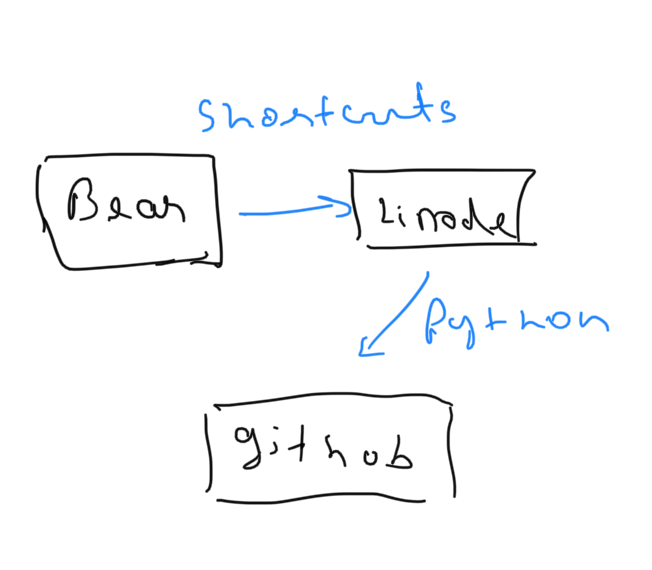 shortcuts
Bear
Linode
Python
github